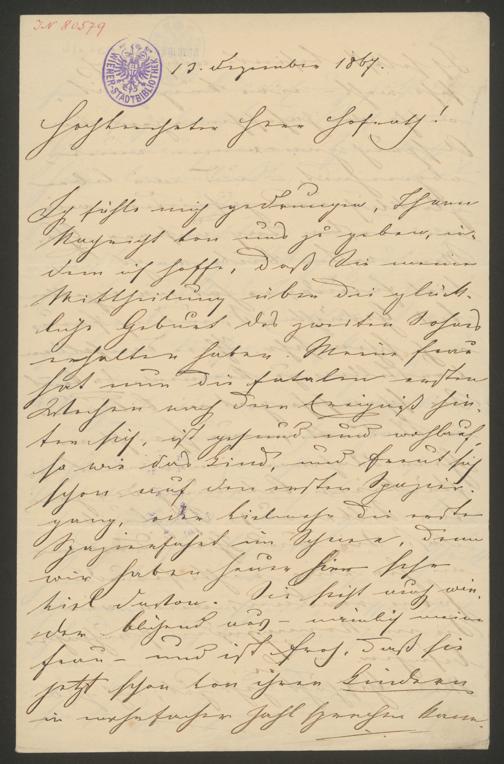 IN 80579
WIENER STADTBIBLIOTHEK
13. Dezember 1867.
Hochverehrter Herr Hofrath!
Ich fühle mich gedrungen, Ihnen
Nachricht von uns zu geben, in-
dem ich hoffe, daß Sie meine
Mittheilung über die glück-
liche Geburt des zweiten Sohnes
erhalten haben. Meine Frau
hat nun die fatalen ersten
Wochen nach dem Ereigniß hin-
ter sich, ist gesund und wohlauf,
so wie das Kind, und freut sich
schon auf den ersten Spazier-
gang, oder vielmehr die erste
Spazierfahrt im Schnee, denn
wir haben heuer hier sehr
viel davon. Sie sieht auch wie-
der blühend aus – nämlich meine
Frau – und ist froh, daß sie
jetzt schon von ihren Kindern
in mehrfacher Zahl sprechen kann.